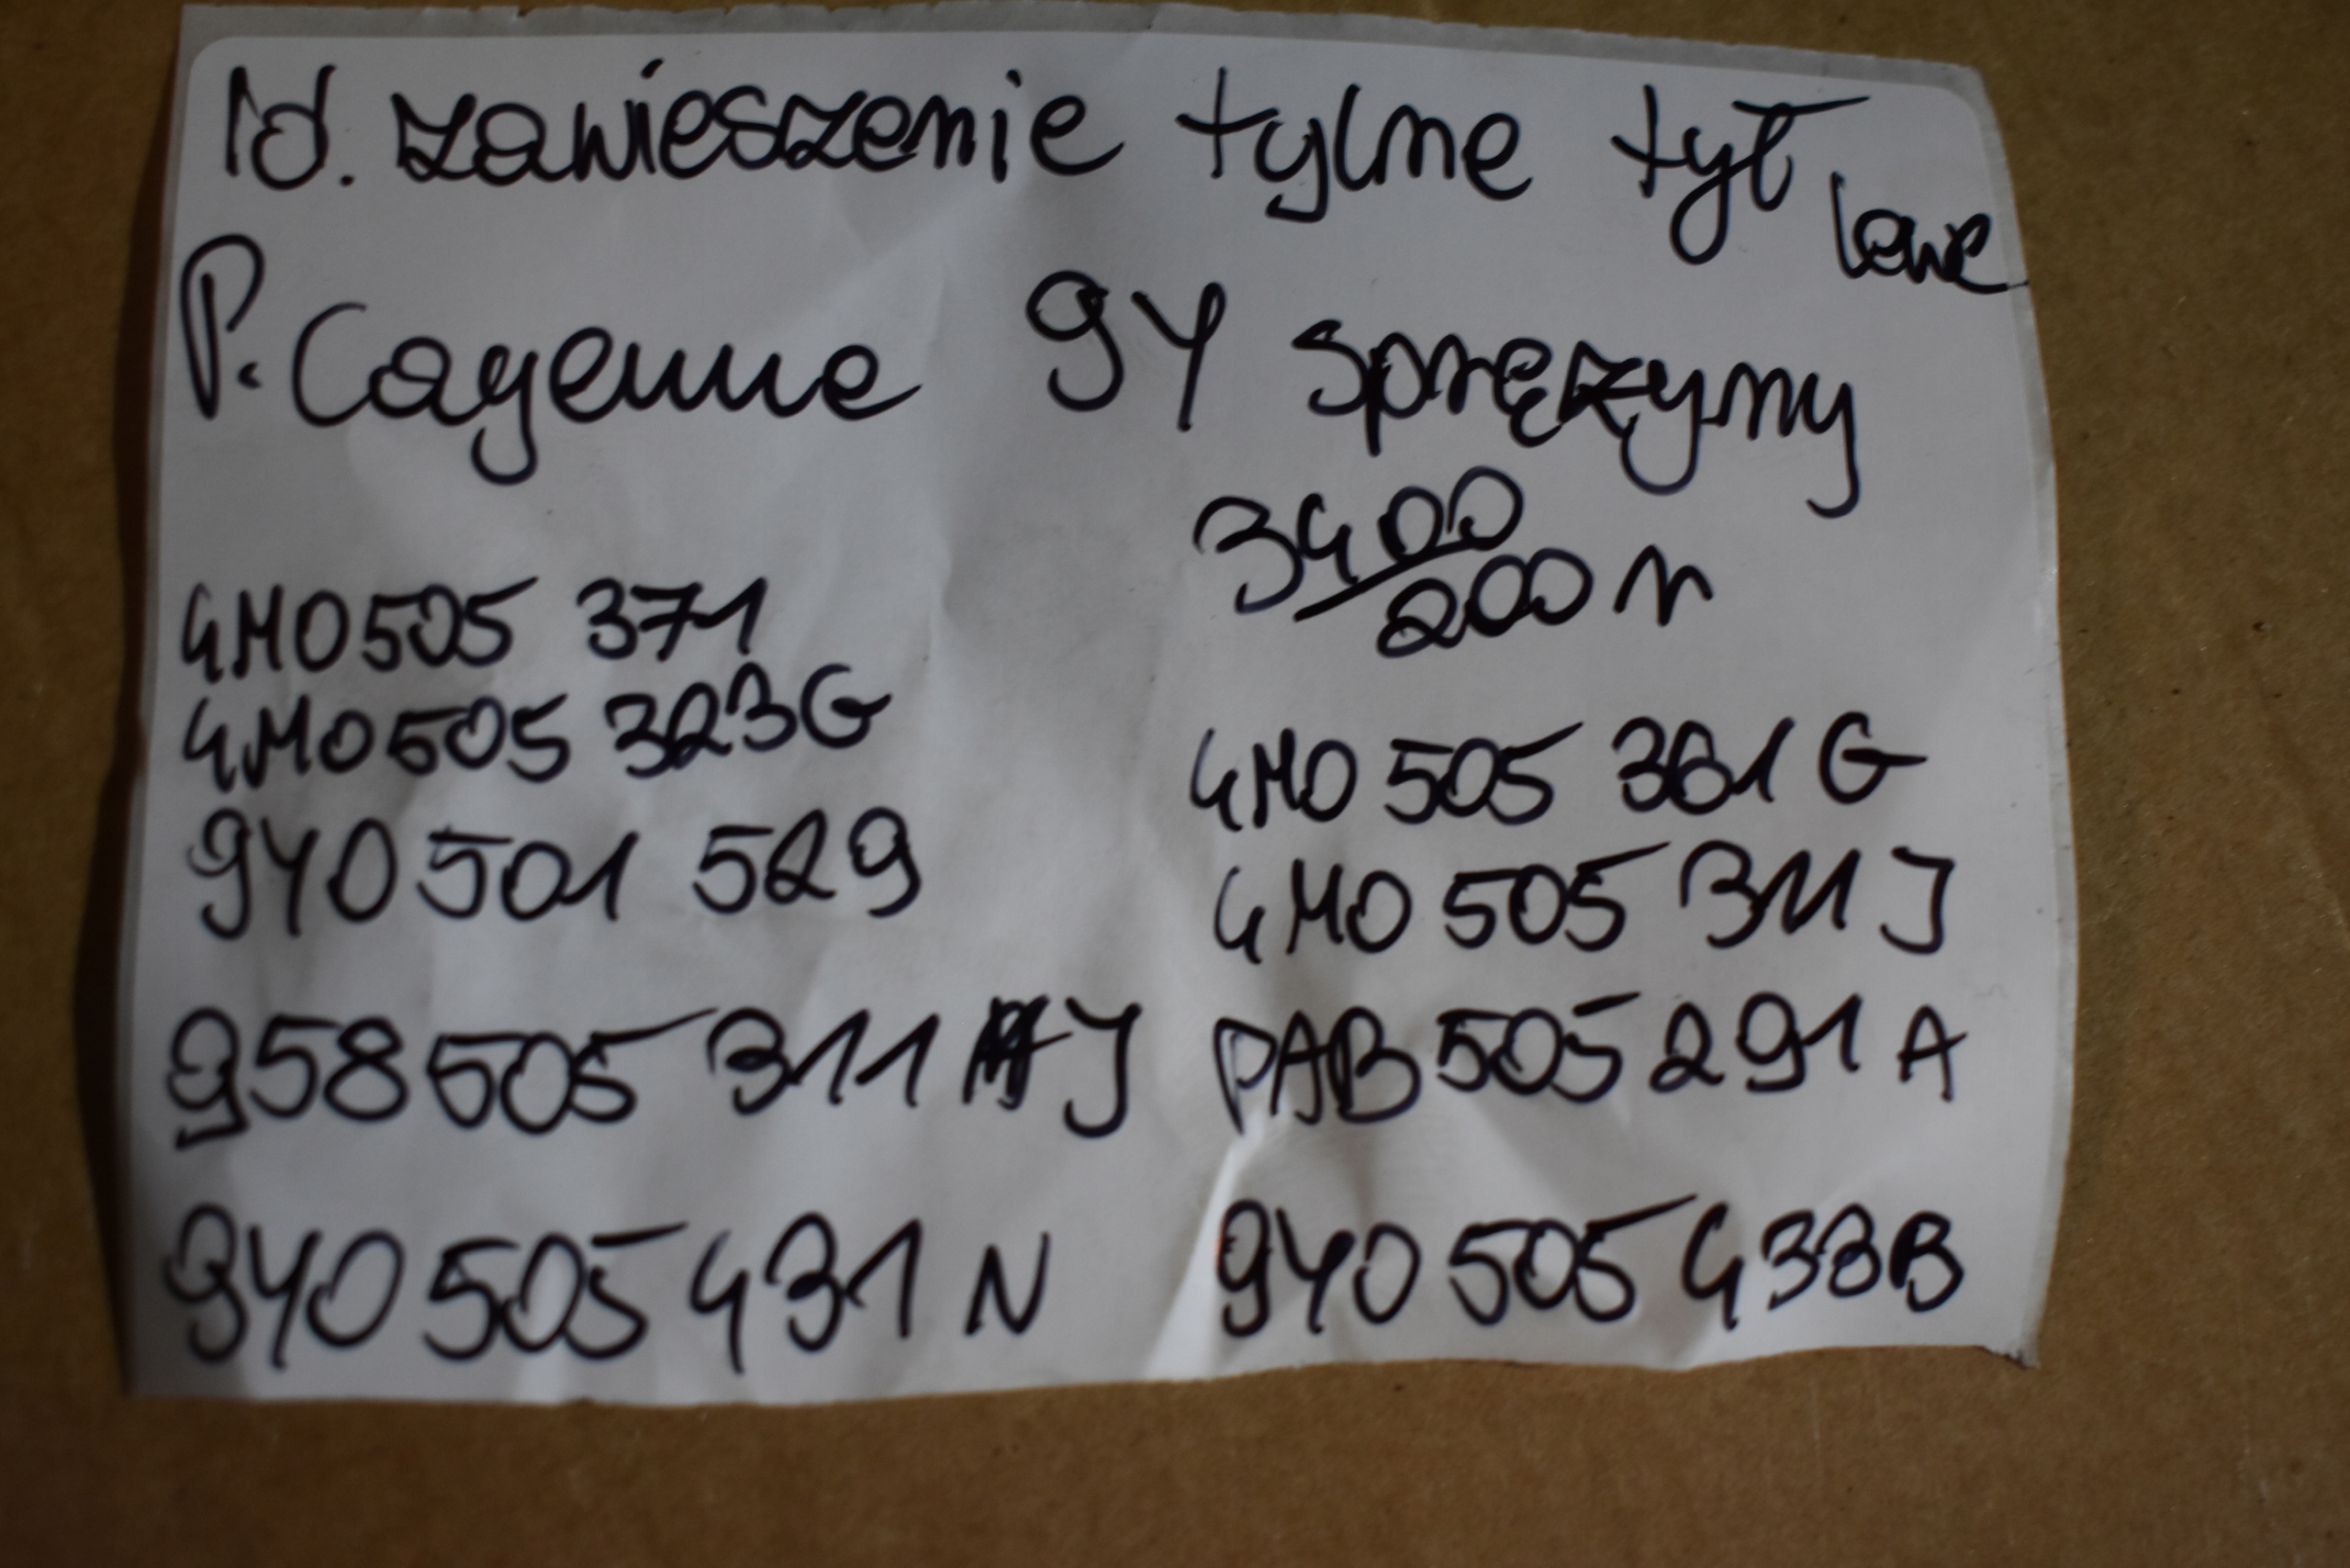 Id. zawieszenie tylne tył lewe
P. Cayenne 9Y sprężyny
3400/200 n
4M0505 371
4M0505 323G
9Y0 501 529
4M0 505 361 G
4M0 505 311 J
958 505 311 J
PAB 505 291 A
9Y0 505 431 N
9Y0 505 433B